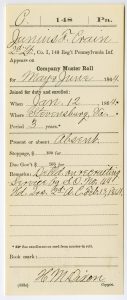 C. 148 Pa.
Junius F. Crain
2d Lt., Co. I, 148 Reg't Pennsylvania Inf.
Appears on
Company Muster Roll
for May & June, 1864.
Joined for duty and enrolled:
When Jan. 12, 1864.
Where Stevensburg, Va.
Period 3 years.
Present or absent Absent
Stoppage, $ 100 for
Due Gov't $ 100 for
Remarks: Detd. on recruiting
service by S.O. No. 44
Hd. Qrs. 2d A.C. Feb. 13, 1864
Book mark:
H M Dixon
Copyist.